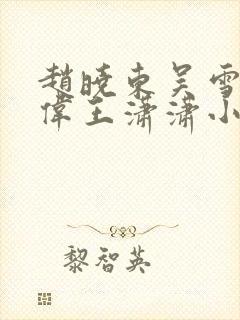 趙曉東吳雪
偉王瀟瀟小
黎智英